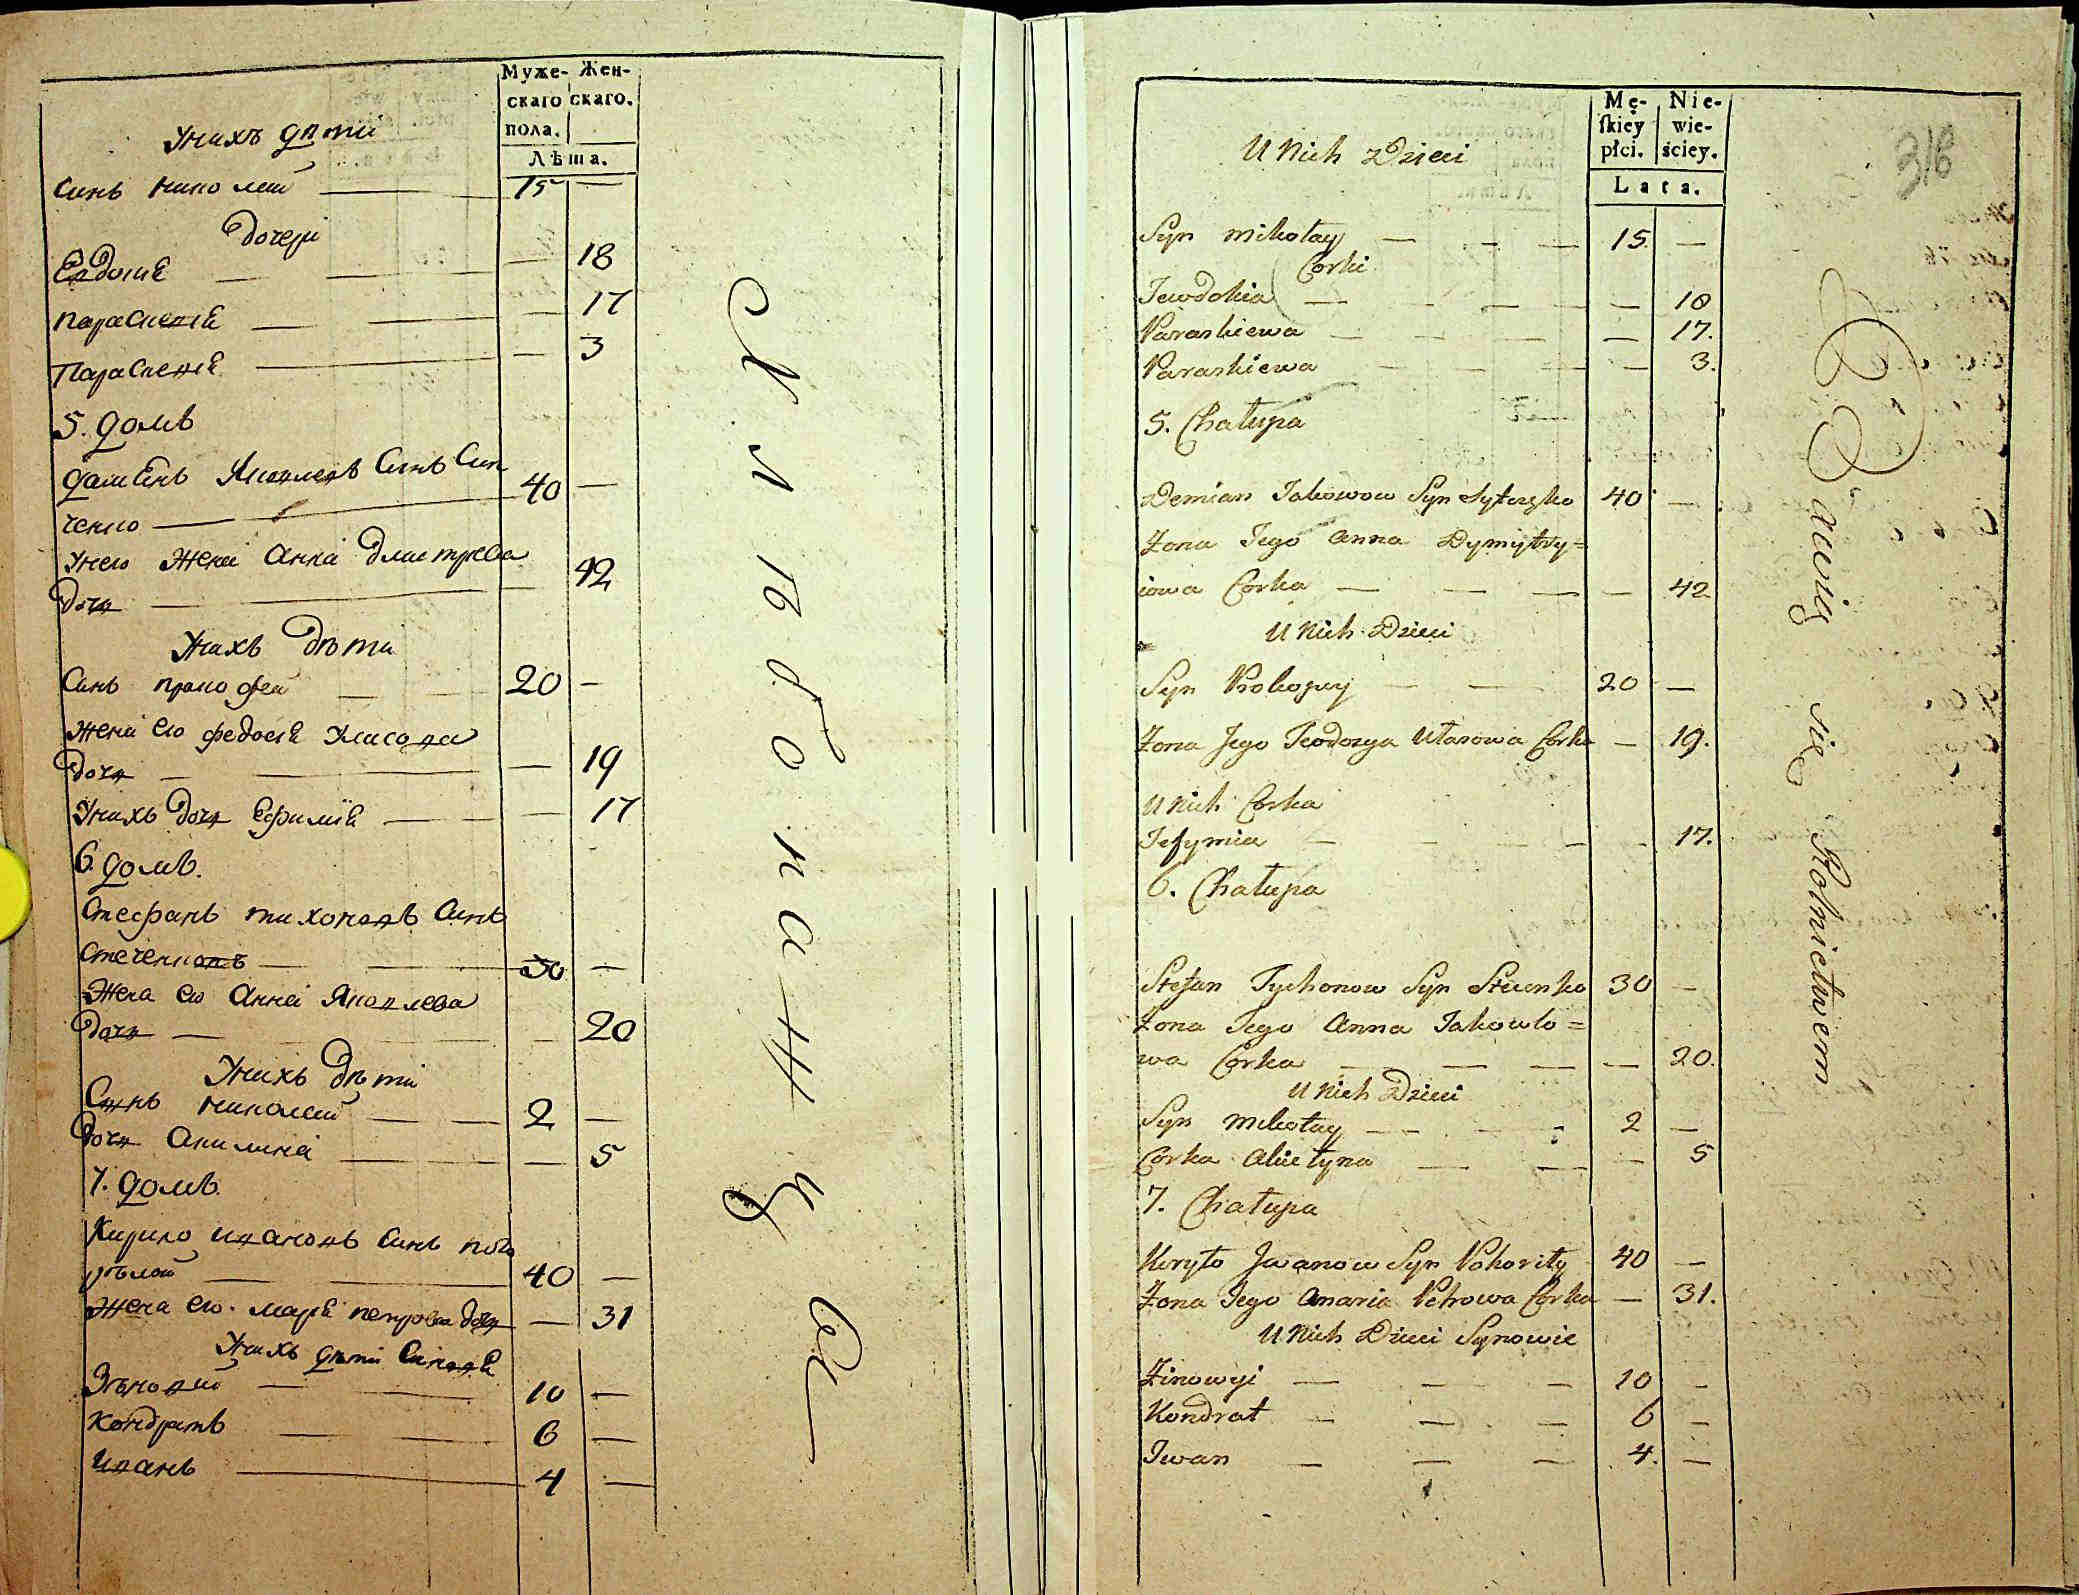 Муже- Жен-
скаго скаго.
пола.
Лѣта.
Унихъ дѣти
Синъ николай — 15 —
Дочери
Евдокиѣ — — — 18
параскевіѣ — — — 17
Параскевіѣ — — 3
5. домъ
дамѣнъ Яковлевъ Синъ Сит
ченко — 40 —
Унего жена Анна дмитрева
Дочь — — 42
Унихъ Дѣти
Синъ прокофей — — 20 —
жена его федосіѣ
Дочь — — — 19
Унихъ Дочь Ефиміѣ — — — 17
6. домъ.
Стефанъ тихоновъ Синъ
стеченковъ — — 30 —
Жена его Анна Яковлева
Дочь — — 20
Унихъ Дѣти
Синъ николай — — 2 —
Дочь Акилина — — — 5
7. домъ
Кирило ивановъ Синъ пого
рѣлой — — 40 —
Жена его. марѣ петрова дочь — 31
Унихъ дѣти Синовѣ
Зѣновий — — 10 —
Кондратъ — — 6 —
иванъ — 4 —
Хлѣбопашце
Mę- Nie-
skiey wie-
płci. ściey.
Lata.
318
U Nich Dzieci
Syn Mikołay — — — 15. —
Corki
Jewdokia — — — — 18
Paraskiewa — — — — 17.
Paraskiewa — — — 3.
5. Chałupa
Demian Jakowow Syn Sytczęko 40 —
Zona Jego Anna Dymytry=
iowa Corka — — — — 42
U Nich Dzieci
Syn Prokopiy — — 20 —
Zona Jego Teodozya Ułasowa Corka — 19.
U Nich Corka
Jefymia — — — — 17.
6. Chałupa
Stefan Tychonow Syn Stecenko 30 —
Zona Jego Anna Jakowlo=
wa Corka — — — — 20.
U Nich Dzieci
Syn Mikołay — — — 2 —
Corka Akiełyna — — — 5
7. Chałupa
Kyryło Jwanow Syn Pohoriły 40 —
Zona Jego Maria Petrowa Corka — 31.
U Nich Dzieci Synowie
Zinowyi — — — 10 —
Kondrat — — — 6 —
Iwan — — — 4. —
Bawią się Rolnictwem